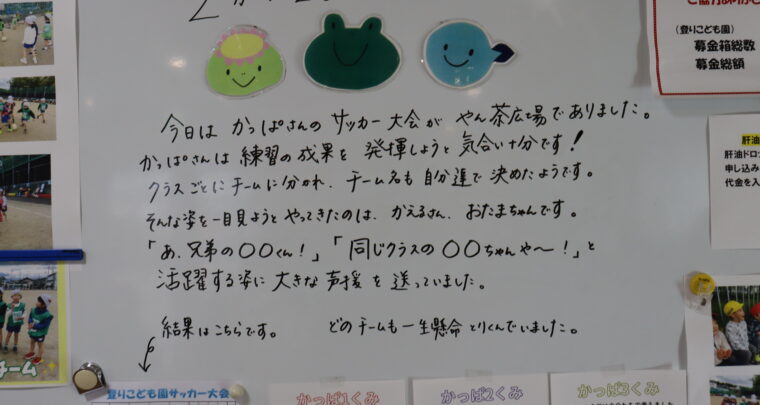 今日は かっぱさんの サッカー大会が やん茶広場でありました。
かっぱさんは 練習の成果を 発揮しようと 気合い十分です!
クラスごとにチームに分かれ、チーム名も自分達で決めたようです。
そんな姿を一目見ようと やってきたのは、かえるさん、おたまちゃんです。
「あ、兄弟の〇〇くん!」「同じクラスの 〇〇ちゃんや〜!」と
活躍する姿に大きな声援を送っていました。
結果はこちらです。 どのチームも一生懸命とりくんでいました。
登りこども園サッカー大会
かっぱ1くみ
かっぱ2くみ
かっぱ3くみ
チーム
(登りこども園)
募金箱総数
募金総額
肝油
肝油ドロ
申し込み
代金を入